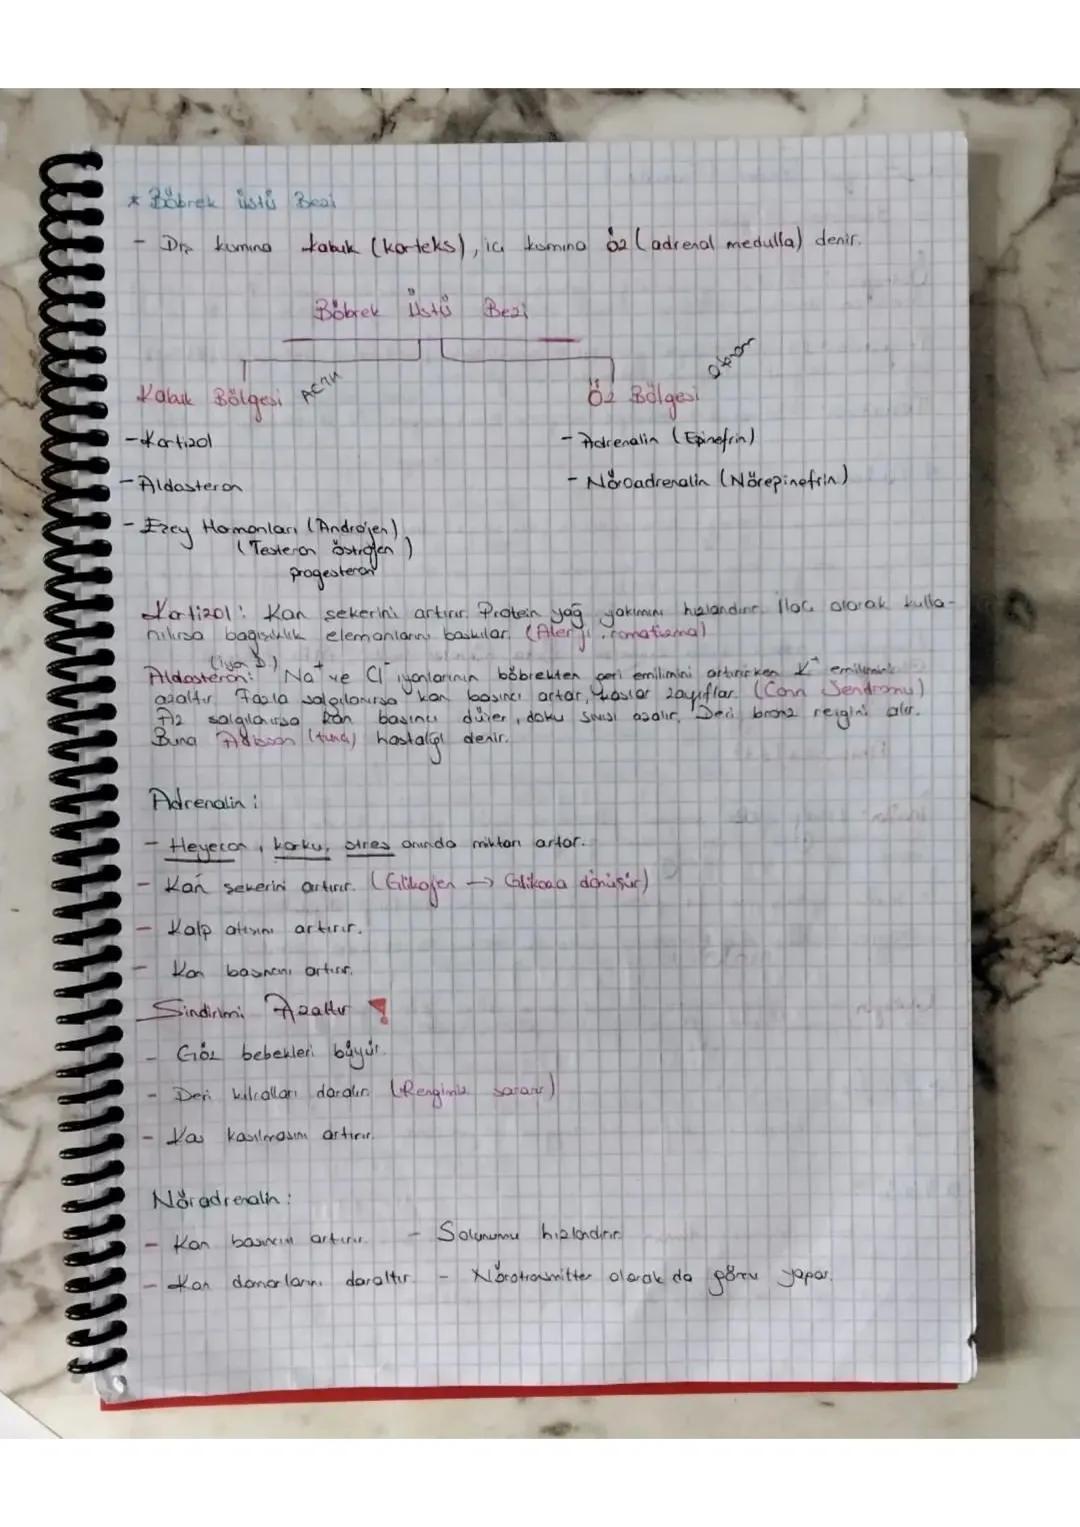 * Böbrek üstü Bezi
- Dış kısmına kabuk (korteks), iç kısmına öz (adrenal medulla) denir.
Böbrek Üstü Bezi
Kabuk Bölgesi ACTH
Öz Bölgesi
- Kortizol
- Adrenalin (Epinefrin)
- Aldosteron
- Nöroadrenalin (Nörepinefrin)
- Eşey Hormonları (Androjen)
(Testeron östrojen)
progesteron
Kortizol: Kan şekerini artırır. Protein yağ yakımını hızlandırır. İlaç olarak kulla-
nılırsa bağışıklık elemanlarını baskılar. (Alerji, romatizma)
(iyon D.)
Aldosteron: Na+ ve Cl- iyonlarının böbrekten geri emilimini artırırken K+ emilimini
azaltır. Fazla salgılanırsa kan basıncı artar, kaslar zayıflar. (Conn Sendromu)
Az salgılanırsa kan basıncı düşer, doku sıvısı azalır, Deri bronz rengini alır.
Buna Adison (tunç) hastalığı denir.
Adrenalin:
- Heyecan, korku, stres anında miktarı artar.
- Kan şekerini artırır. (Glikojen → Glikoza dönüşür)
- Kalp atışını artırır.
- Kan basıncını artırır.
Sindirimi Azaltır !
- Göz bebekleri büyür.
- Deri kılcalları daralır. (Rengimiz sararır)
- Kas kasılmasını artırır.
Nöradrenalin:
- Kan basıncını artırır. - Solunumu hızlandırır.
- Kan damarlarını daraltır. - Nörotrasmitter olarak da görev yapar.